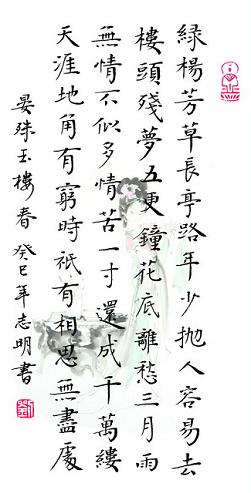 綠楊芳草長亭路年少抛人容易去
樓頭殘夢五更鐘花底離愁三月雨
無情不似多情苦一寸還成千萬縷
天涯地角有窮時祇有相思無盡處
晏殊玉樓春 癸巳年志明書